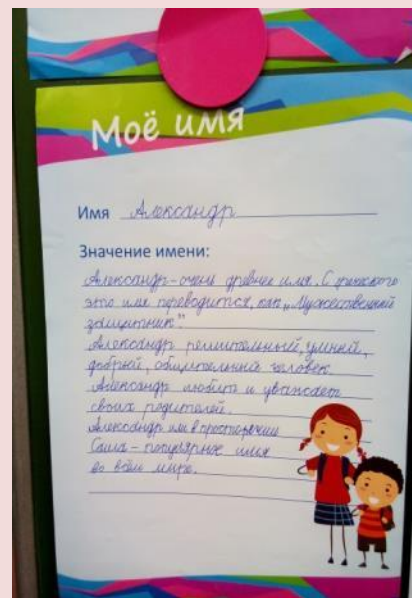 Моё имя
Имя Александр
Значение имени:
Александр – очень древнее имя. С греческого
это имя переводится, как „Мужественный
защитник".
Александр решительный, умный,
добрый, общительный человек.
Александр любит и уважает
своих родителей.
Александр или в просторечии
Саша – популярное имя
во всём мире.